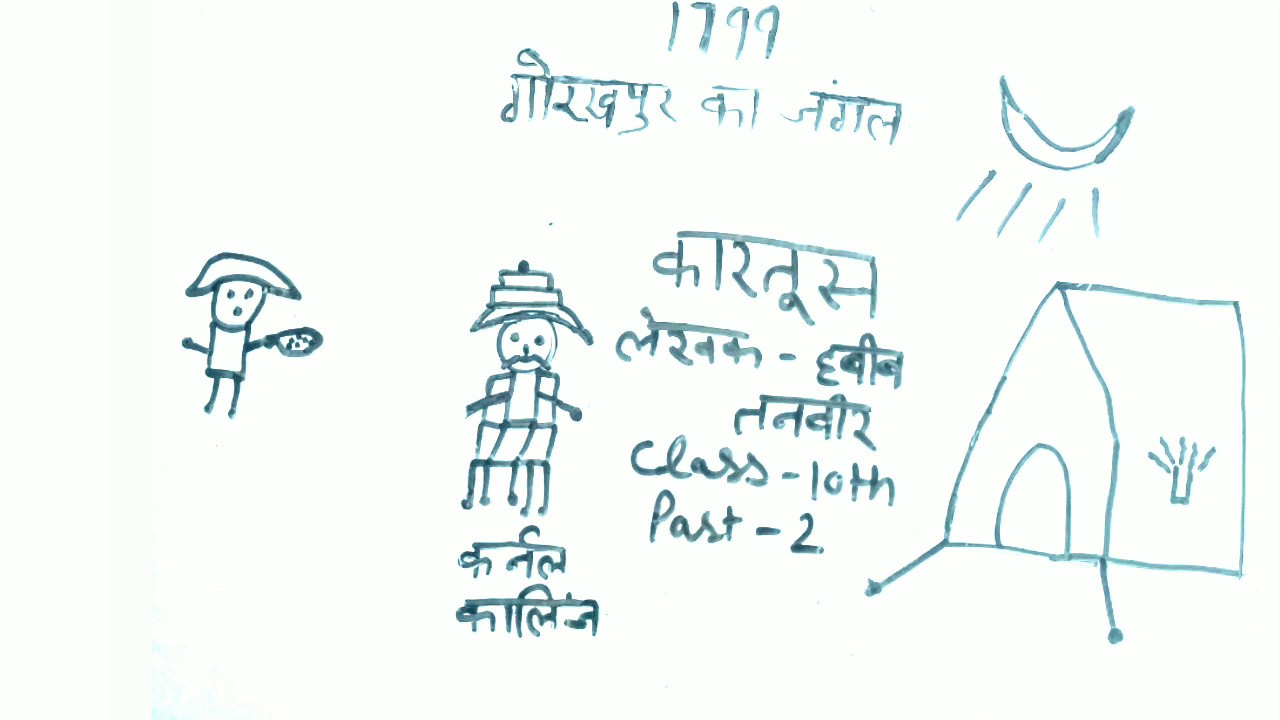 1799
गोरखपुर का जंगल
कारतूस
लेखक - हबीब
तनवीर
Class - 10th
Part - 2
कर्नल
कालिंज